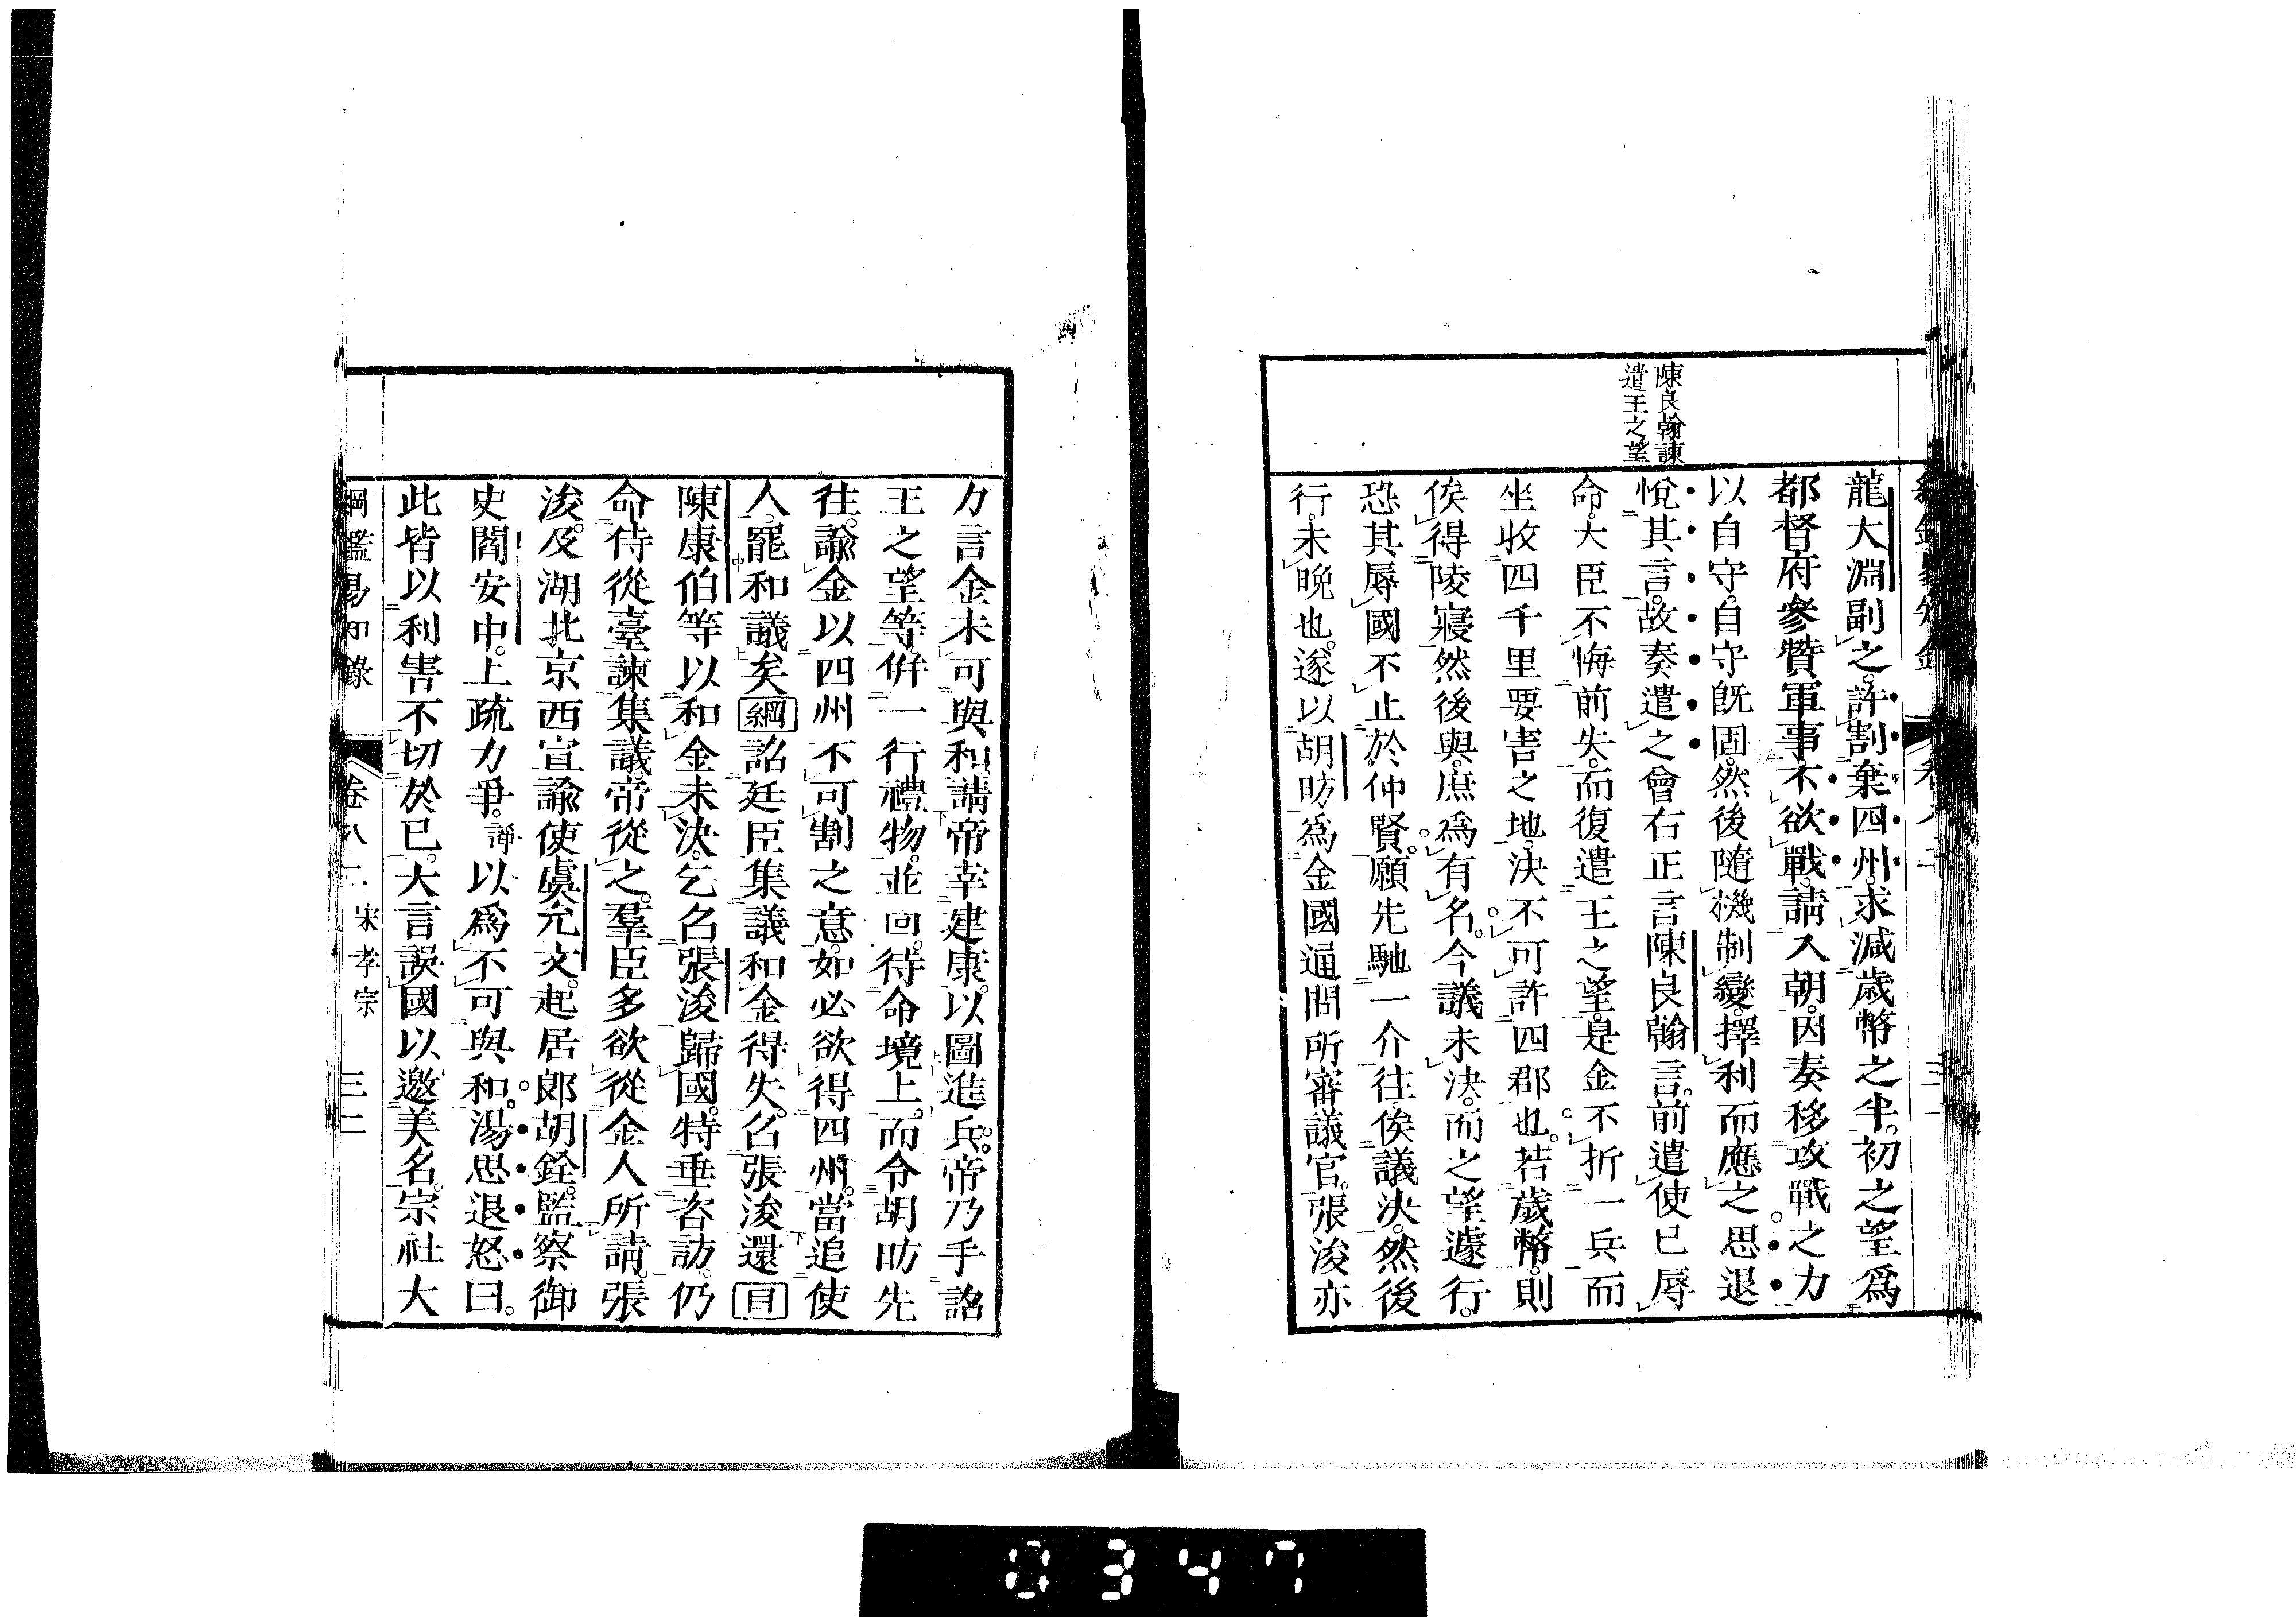 陳良翰諫
遣王之望
龍大淵副之。許割棄四州。求減歲幣之半。初之望爲
都督府參贊軍事。不欲戰。請入朝。因奏移攻戰之力
以自守。自守旣固。然後隨機制變。擇利而應之。思退
悅其言。故奏遣之。會右正言陳良翰言。前遣使已辱
命。大臣不悔前失。而復遣王之望。是金不折一兵而
坐收四千里要害之地。決不可許四郡也。若歲幣。則
俟得陵寢然後與。庶爲有名。今議未決。而之望遽行。
恐其辱國不止於仲賢。願先馳一介往。俟議決。然後
行。未晚也。遂以胡昉爲金國通問所審議官。張浚亦
力言金未可與和。請帝幸建康。以圖進兵。帝乃手詔
王之望等。倂一行禮物。並回。待命境上。而令胡昉先
往。諭金以四州不可割之意。如必欲得四州。當追使
人。罷和議矣綱詔廷臣集議和金得失。召張浚還目
陳康伯等以和金未決。乞召張浚歸國。特垂咨訪。仍
命侍從臺諫集議。帝從之。羣臣多欲從金人所請。張
浚。及湖北京西宣諭使虞允文。起居郎胡銓。監察御
史閻安中。上疏力爭。諍以爲不可與和。湯思退怒曰。
此皆以利害不切於已。大言誤國以邀美名。宗社大
綱鑑易知錄 卷八一 宋孝宗 三二
0347